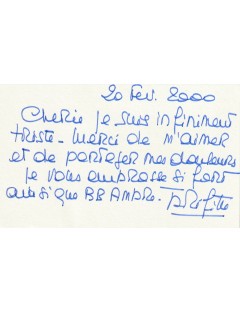 20 Fev. 2000
Cherie je suis infiniment
triste - Merci de m'aimer
et de partager mes douleurs
je vous embrasse si fort
ainsi que BB Ambre.